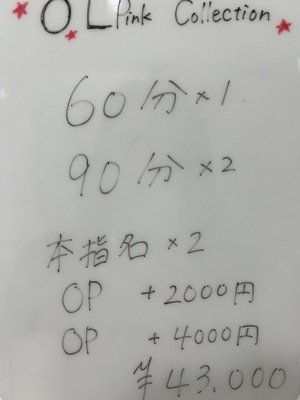 OL Pink Collection
60分×1
90分×2
本指名×2
OP +2000円
OP +4000円
¥43.000